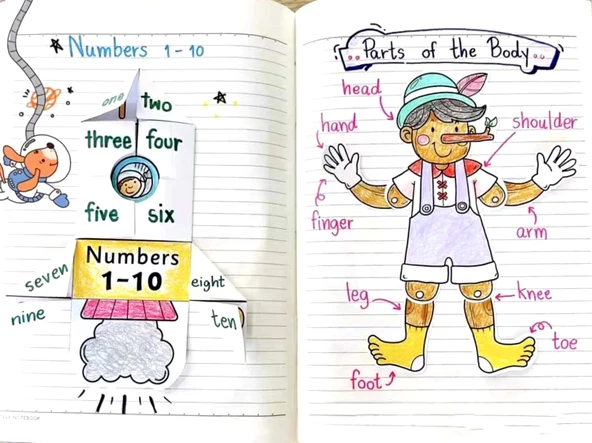 Numbers 1-10
one
two
three four
five six
Numbers
1-10
seven
eight
nine
ten
Parts of the Body
head
hand
shoulder
finger
arm
leg
knee
toe
foot